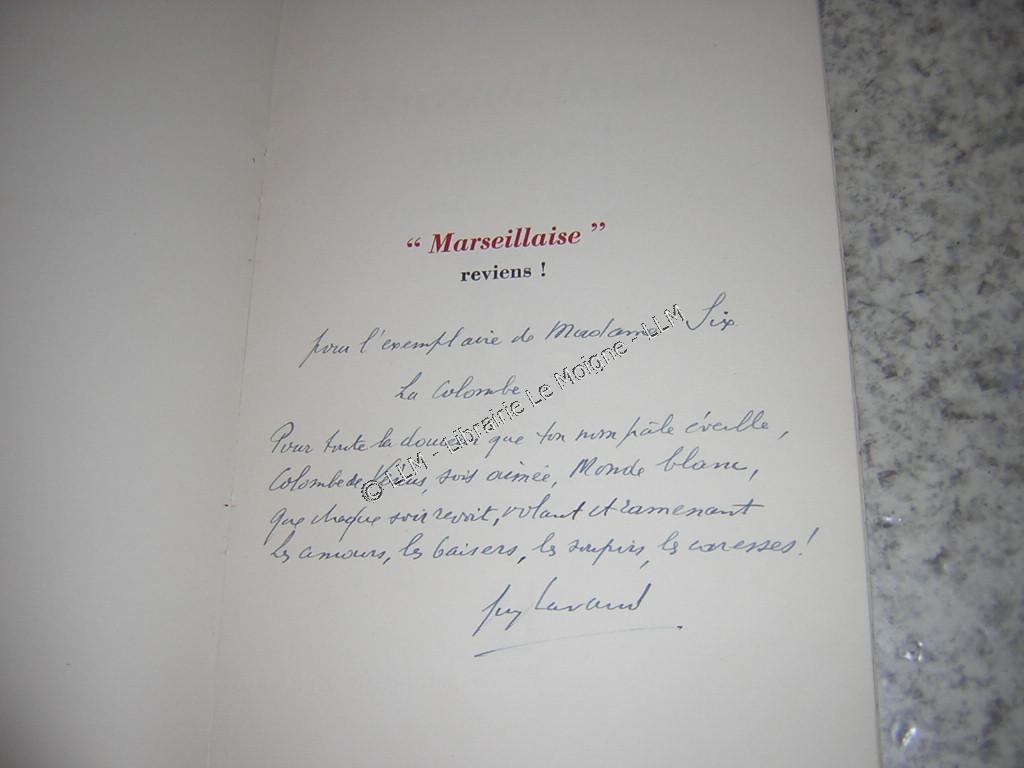 “ Marseillaise ”
reviens !
pour l'exemplaire de Madame Six
La Colombe
Pour toute la douceur que ton nom pâle éveille,
Colombe de Vénus, sois aimée, Monde blanc,
que chaque soir revoit, volant et ramenant
les amours, les baisers, les soupirs, les caresses !
Guy Lavaud
© LLM - Librairie Le Moigne - LLM